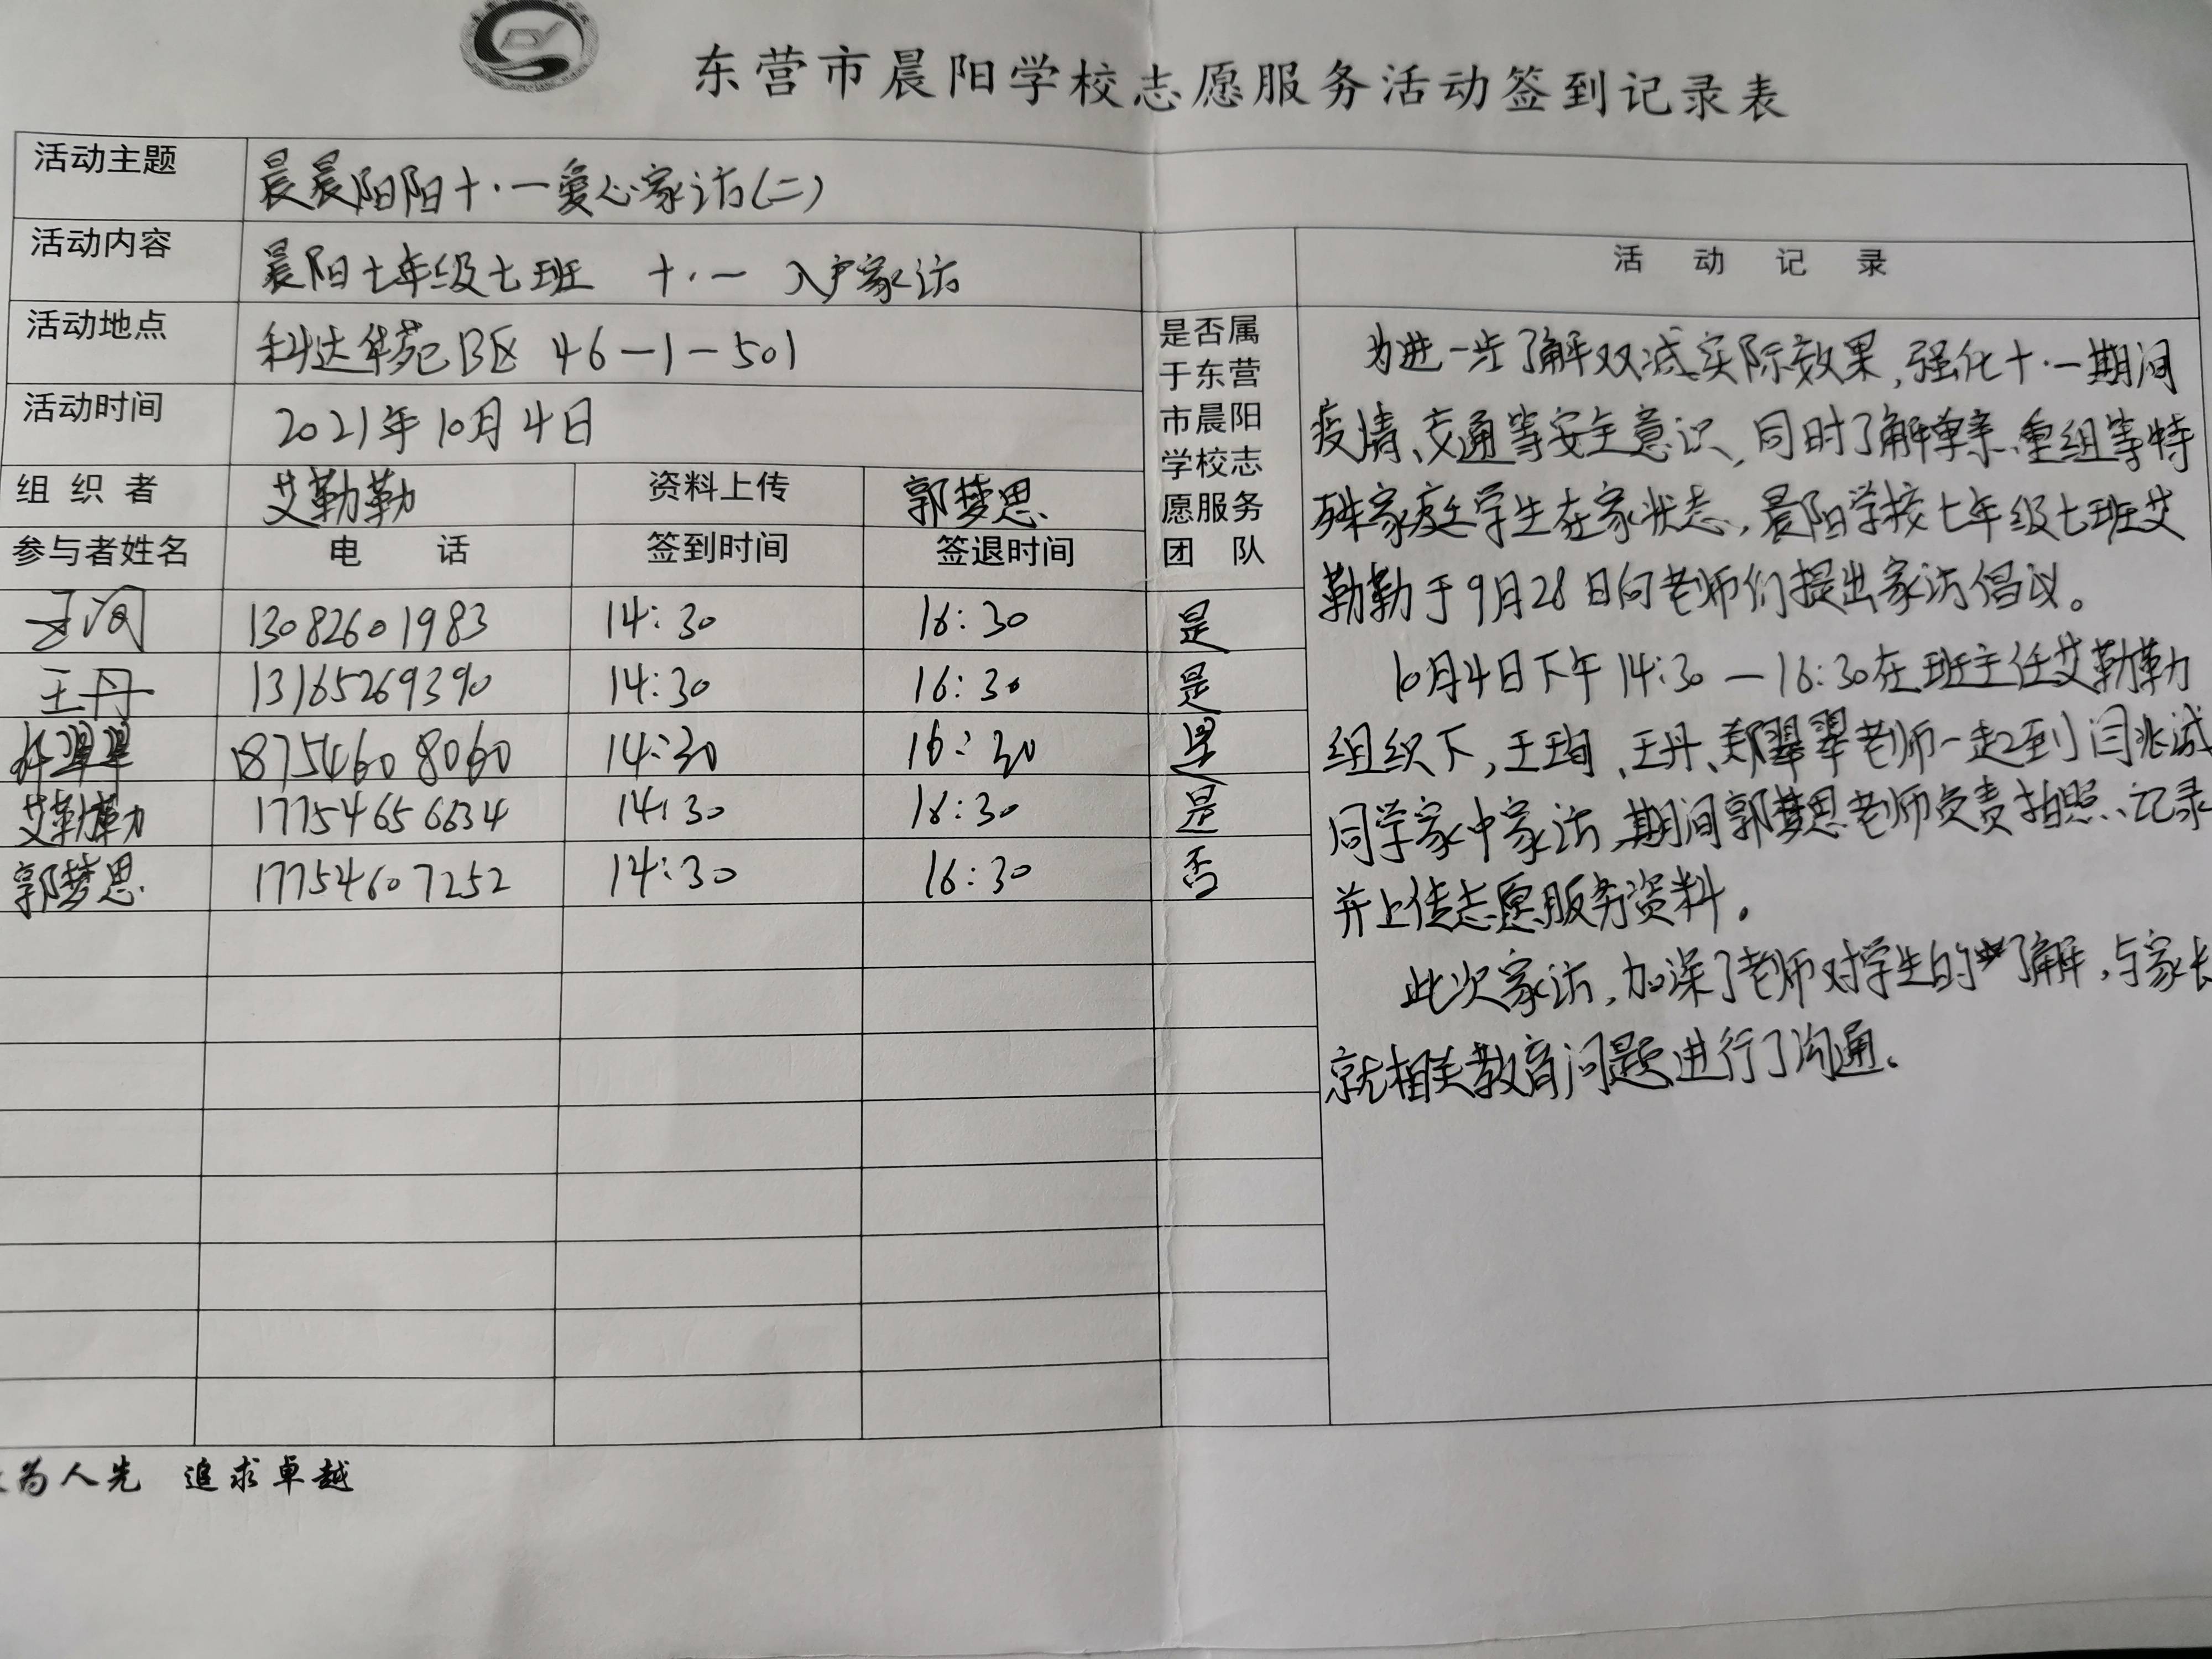 东营市晨阳学校志愿服务活动签到记录表
活动主题 晨晨阳阳十·一爱心家访(二)
活动内容 晨阳七年级七班 十·一 入户家访
活动地点 科达华苑B区 46-1-501
活动时间 2021年10月4日
组织者 艾勒勒 资料上传 郭梦思
参与者姓名 电话 签到时间 签退时间
是否属
于东营
市晨阳
学校志
愿服务
团队
13082601983 14:30 16:30 是
王丹 13165269390 14:30 16:30 是
翠翠 18754608060 14:30 16:30 是
艾勒勒 17754656634 14:30 16:30 是
郭梦思 17754607252 14:30 16:30 否
活动记录
为进一步了解双减实际效果,强化十·一期间
疫情、交通等安全意识,同时了解单亲、重组等特
殊家庭学生在家状态,晨阳学校七年级七班艾
勒勒于9月28日向老师们提出家访倡议。
10月4日下午14:30—16:30在班主任艾勒勒
组织下,王珣、王丹、郑翠翠老师一起到闫兆诚
同学家中家访,期间郭梦思老师负责拍照、记录
并上传志愿服务资料。
此次家访,加深了老师对学生的了解,与家长
就相关教育问题进行了沟通。
为人先 追求卓越